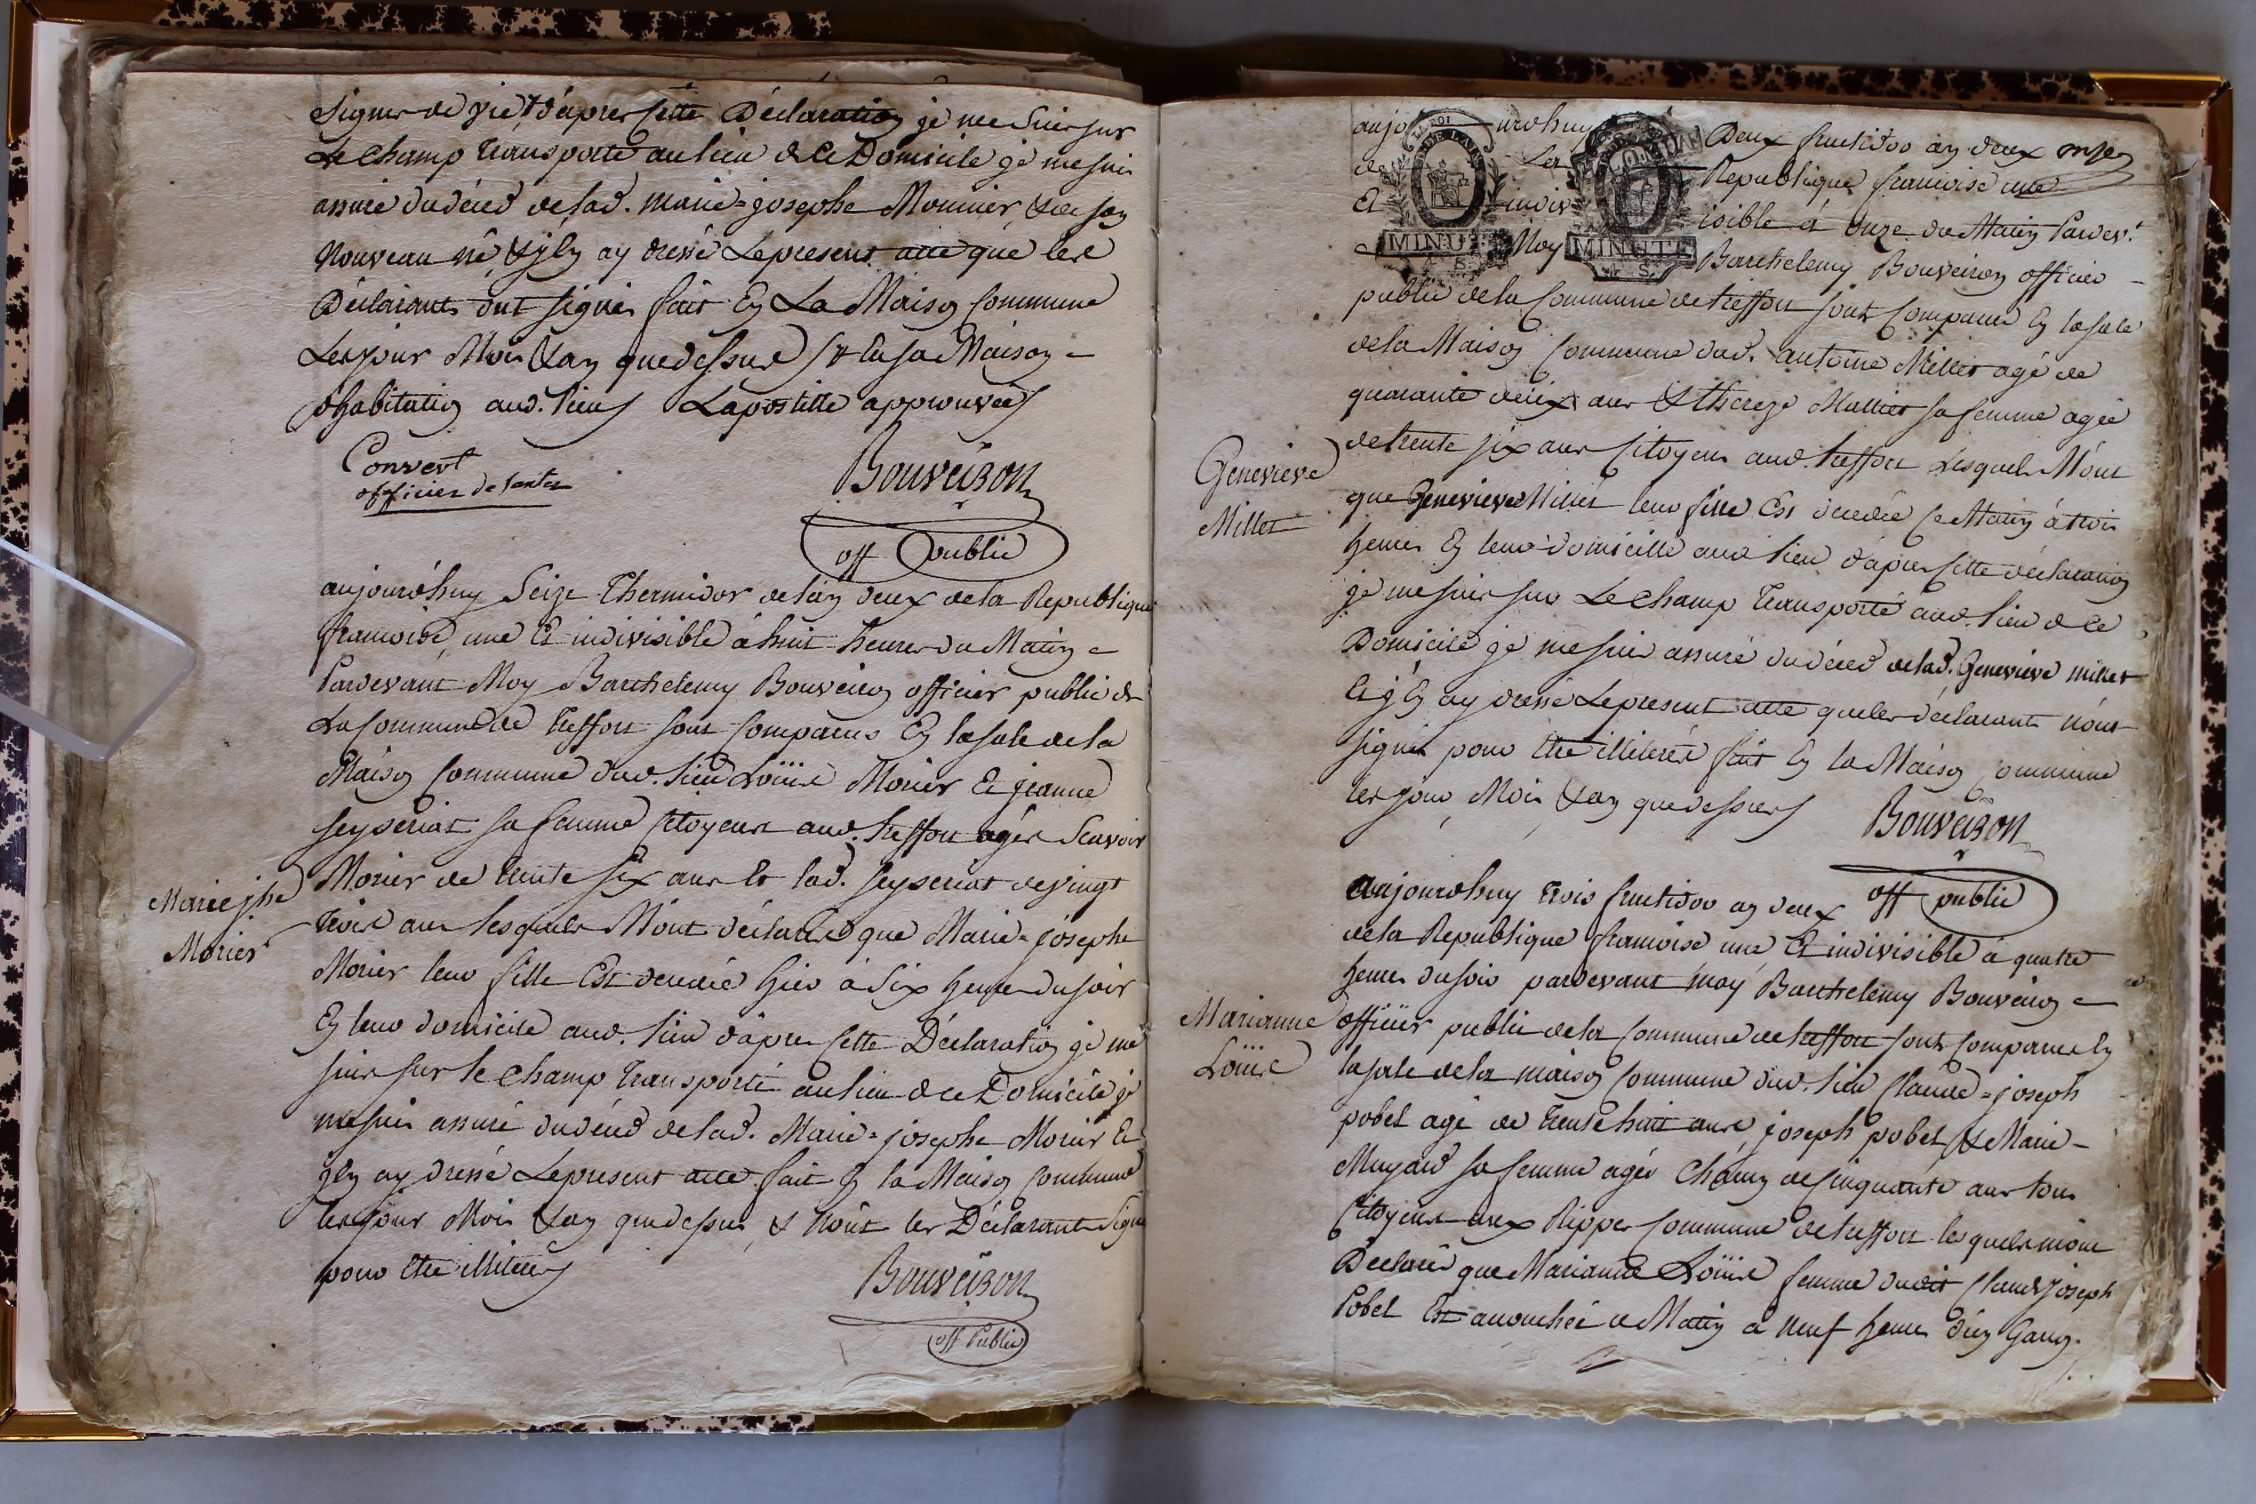 signes de vie & d'après cette Déclaration je me suis sur
Le champ transporté au lieu de ce Domicile je me suis
assuré du décéd de lad. marie=josephe Monnier & de son
nouveau né, & j'En ay dressé Le present acte que les
Déclarants ont signés fait En La Maison Commune
Les jour Mois & an que dessus
d'habitation aud. lieu Lapostille approuvée
Convert
officier de santé
Bouveiron
off public
aujourd'huy Seize Thermidor de l'an deux de la Republique
francoise, une Et indivisible à huit heures du Matin
Pardevant Moy Barthelemy Bouveiron officier public de
La Commune de treffort sont comparus En la sale de la
Maison Commune dud. lieu Loüis Morier Et jeanne
seyseriat sa femme citoyens aud. treffort agés Scavoir
Morier de trente six ans Et lad. seyseriat de vingt
trois ans lesquels M'ont déclarés que Marie=josephe
Marie jphe
Morier
Morier leur fille Est decedée hier à Six heures du soir
En leur domicile aud. lieu d'après cette Déclaration je me
suis sur le champ transporté au lieu de ce Domicile je
me suis assuré du décéd de lad. Marie=josephe Morier Et
j'En ay dressé Le present acte fait En la Maison Commune
les jour Mois & an que dessus & n'ont les Déclarants Signé
pour être illiterés
Bouveiron
off Public
aujourdhuy Deux fructidor an deux
de La Republique francoise une
Et indivisible à onze du Matin Pardev.t
Moy Barthelemy Bouveiron officier
public de la Commune de treffort sont Comparus En la sale
de la Maison Commune dud. antoine Millet agé de
quarante deux ans & thereze Mallet sa femme agée
de trente six ans Citoyens aud. treffort Lesquels M'ont
Genevieve
Millet
que Genevieve Millet leur fille Est decedée ce Matin à trois
heures En leur domicille aud. lieu d'après cette déclaration
je me suis sur Le champ transporté aud. lieu de ce
Domicile je me suis assuré du décéd de lad. Genevieve millet
Et j'En ay dressé Le present acte que les déclarants n'ont
signés pour être illiterés fait En la Maison Commune
les jour, Mois & an que dessus
Bouveiron
off public
aujourdhuy trois fructidor an deux
de la Republique francoise une Et indivisible à quatre
heures du soir pardevant moy Barthelemy Bouveiron
Marianne
Loüise
officier public de la Commune de treffort sont Comparus En
la sale de la maison Commune dud. lieu Claude=joseph
pobel agé de trente huit ans, joseph pobel & Marie
Muyard sa femme agés chacun de Cinquante ans tous
Citoyens aux Rippes Commune de treffort lesquels m'ont
Déclaré que Marianne Loüise femme dudit Claude joseph
Pobel Est accouchée ce Matin à neuf heures d'un Garçon